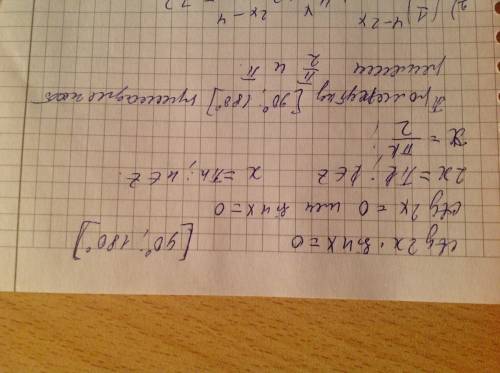 ctg 2x · sin 4x = 0 [90°; 180°]
ctg 2x = 0 или sin 4x = 0
2x = πk; k ∈ z x = πn; n ∈ z.
x = πk/2;
Промежутку [90°; 180°] принадлежат
решения π/2 и π.
2) 4-2x 2x-4